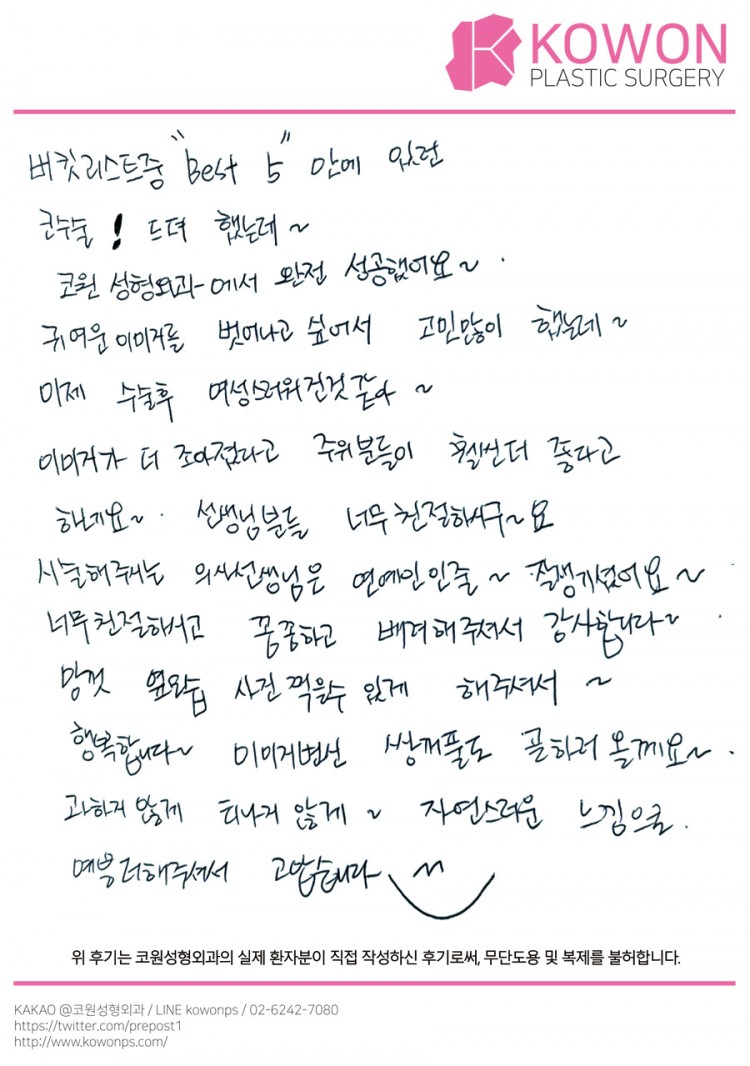 KOWON
PLASTIC SURGERY
버킷리스트중 "Best 5" 안에 있던
코수술! 드뎌 했는데~
코원 성형외과에서 완전 성공했어요~
귀여운 이미지를 벗어나고 싶어서 고민많이 했는데~
이제 수술후 여성스러워진것 같아~
이미지가 더 조아졌다고 주위분들이 훨씬더 좋다고
하네요~ 선생님분들 너무 친절하시구~요
시술해주시는 의사선생님은 연예인인줄~ 잘생기셨어요~
너무 친절하시고 꼼꼼하고 배려해주셔서 감사합니다~
맘껏 옆모습 사진 찍을수 있게 해주셔서~
행복합니다~ 이미지변신 쌍꺼풀도 하러 올께요~
과하지 않게 티나지 않게~ 자연스러운 느낌으로
해주셔서 고맙습니다
위 후기는 코원성형외과의 실제 환자분이 직접 작성하신 후기로써, 무단도용 및 복제를 불허합니다.
KAKAO @코원성형외과 / LINE kowonps / 02-6242-7080
https://twitter.com/prepost1
http://www.kowonps.com/